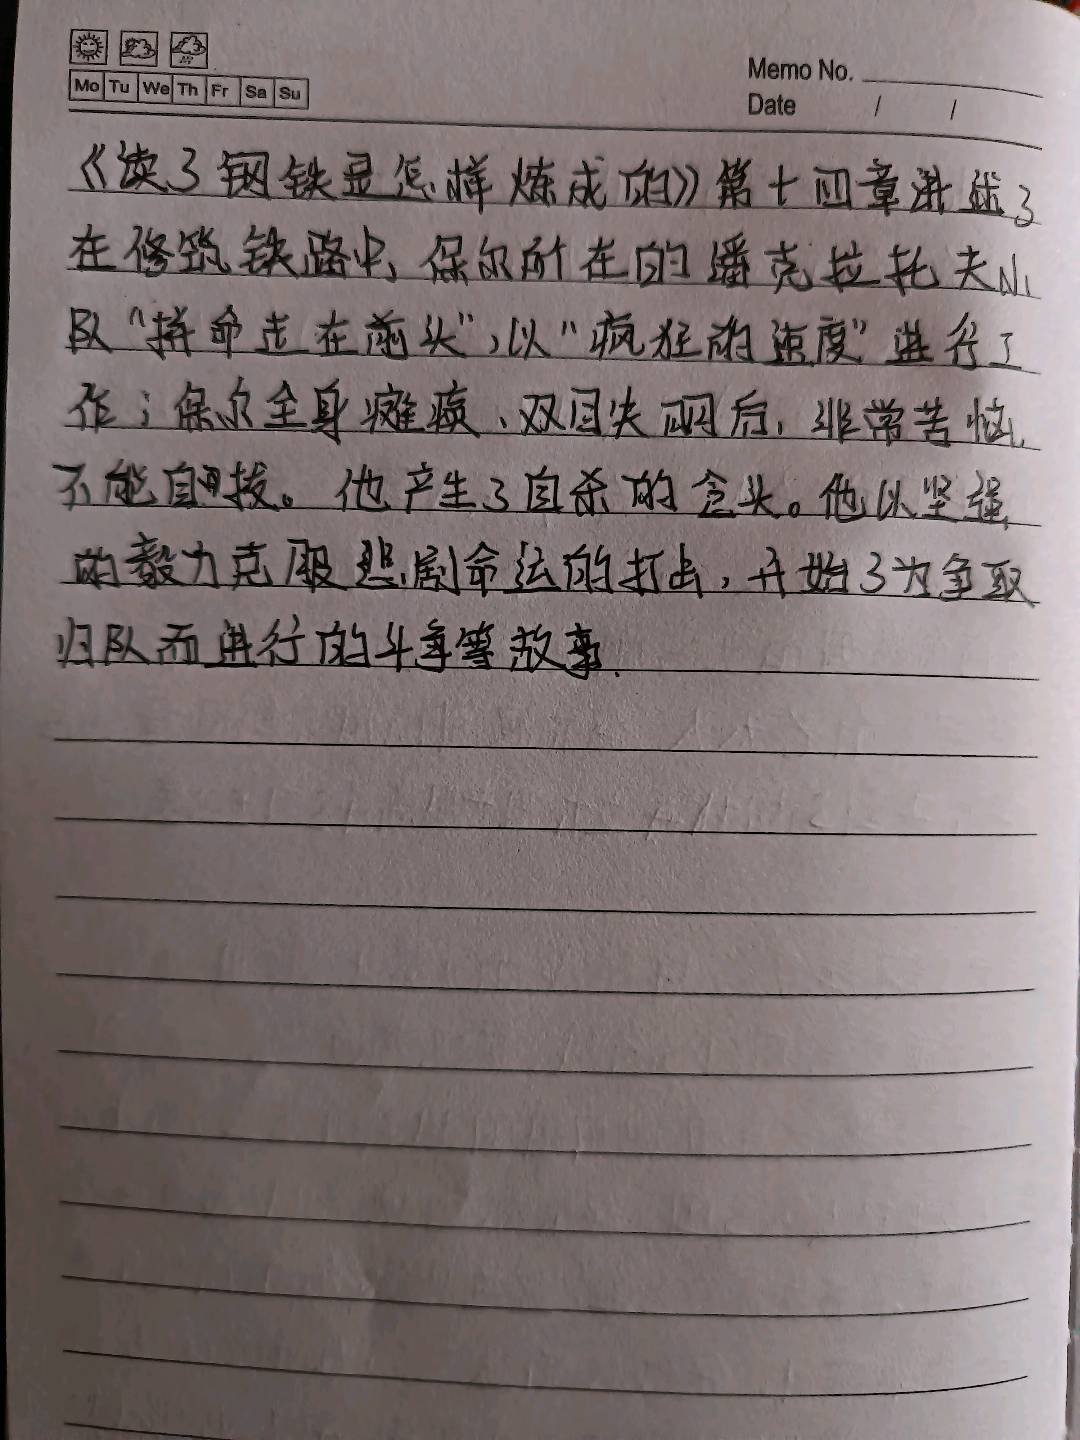 Mo Tu We Th Fr Sa Su
Memo No.
Date / /
《读了钢铁是怎样炼成的》第十四章讲述了
在修筑铁路中,保尔所在的潘克拉托夫小
队“拼命走在前头”,以“疯狂的速度”进行工
作;保尔全身瘫痪、双目失明后,非常苦恼,
不能自拔。他产生了自杀的念头。他以坚强
的毅力克服悲剧命运的打击,开始了为争取
归队而进行的斗争等故事.